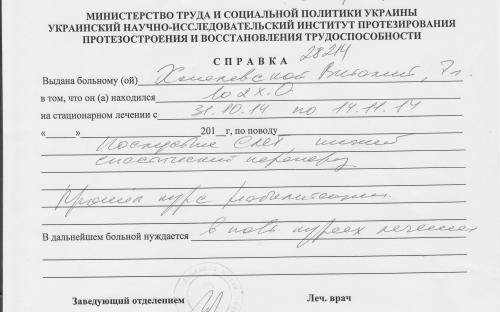 МИНИСТЕРСТВО ТРУДА И СОЦИАЛЬНОЙ ПОЛИТИКИ УКРАИНЫ
УКРАИНСКИЙ НАУЧНО-ИССЛЕДОВАТЕЛЬСКИЙ ИНСТИТУТ ПРОТЕЗИРОВАНИЯ
ПРОТЕЗОСТРОЕНИЯ И ВОССТАНОВЛЕНИЯ ТРУДОСПОСОБНОСТИ
СПРАВКА 28214
Выдана больному (ой) Виталий, 7 г.
в том, что он (а) находился
на стационарном лечении с 31.10.14 по 14.11.14
«______» ______ 201__г, по поводу
нижний
спастический парапарез
Прошел курс реабилитации.
В дальнейшем больной нуждается в повт. курсах лечения
Заведующий отделением Леч. врач